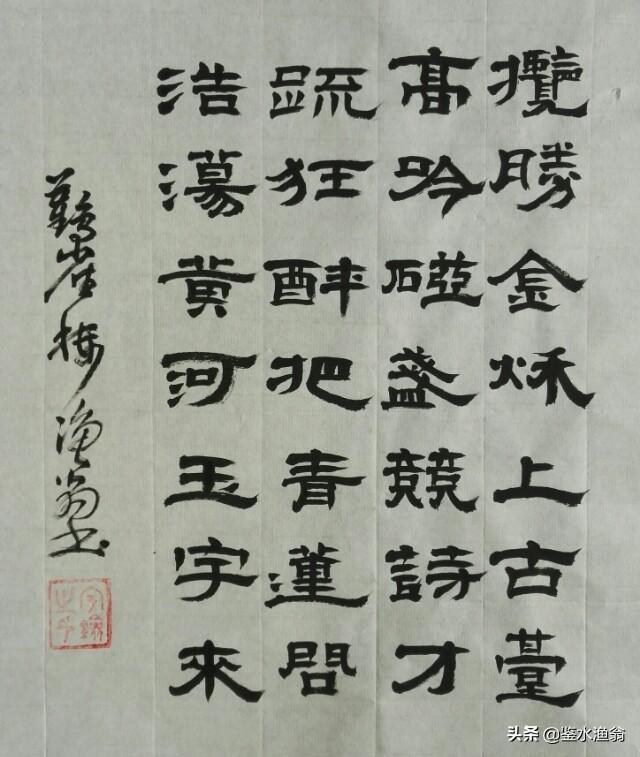 攬勝金秌上古臺
髙吟碰盞競詩才
疏狂醉把青蓮問
浩蕩黄河玉字來
鸛雀楼漁翁书
头条 @鉴水渔翁